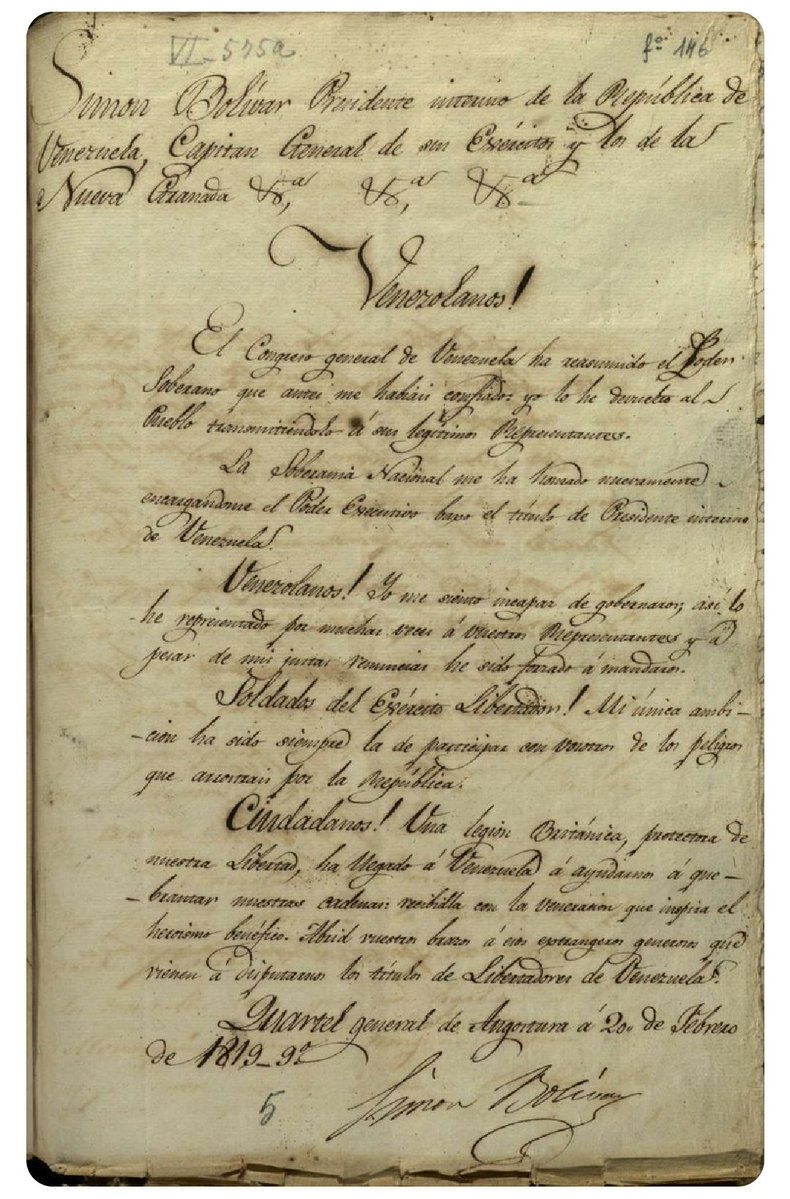 VI-575a
fº 146
Simon Bolívar Presidente interino de la República de
Venezuela, Capitan General de sus Exércitos y los de la
Nueva Granada &ª, &ª, &ª
Venezolanos!
El Congreso general de Venezuela ha reasumido el Poder
Soberano que antes me habían confiado: yo lo he devuelto al
Pueblo transmitiéndolo á sus legítimos Representantes.
La Soberanía Nacional me ha honrado nuevamente
encargandome el Poder Executivo baxo el título de Presidente interino
de Venezuela.
Venezolanos! Yo me siento incapaz de gobernaros; así lo
he representado por muchas veces á vuestros Representantes y á
pesar de mis justas renuncias he sido forzado á mandaros.
Soldados del Exército Libertador! Mi única ambi-
-ción ha sido siempre la de participar con vosotros de los peligros
que arrostrais por la República.
Ciudadanos! Una legión Británica, protectora de
nuestra Libertad, ha llegado á Venezuela á ayudarnos á que-
-brantar nuestras cadenas: recibilla con la veneración que inspira el
heroismo benéfico. Abrid vuestros brazos á esos extrangeros generosos que
vienen á disputarnos los títulos de Libertadores de Venezuela.
Quartel general de Angostura á 20 de Febrero
de 1819-9º
Simon Bolívar
5